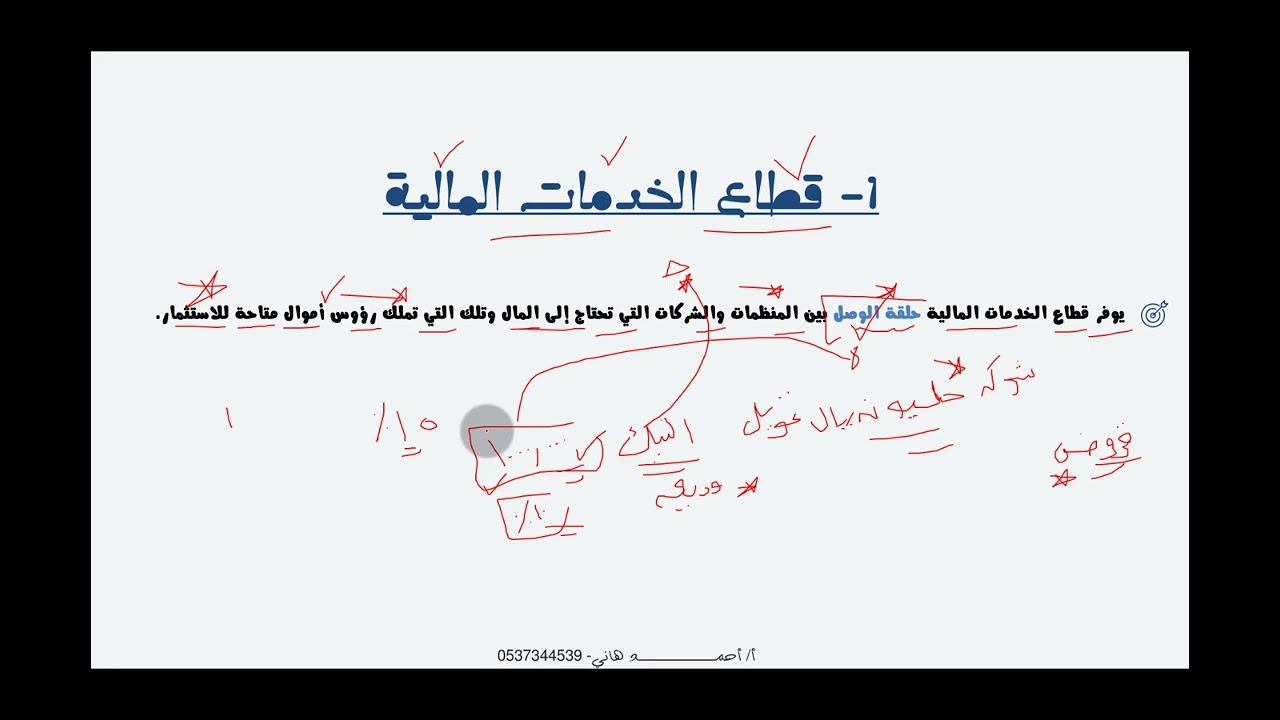 1- قطاع الخدمات المالية
يوفر قطاع الخدمات المالية حلقة الوصل بين المنظمات والشركات التي تحتاج إلى المال وتلك التي تملك رؤوس أموال متاحة للاستثمار.
شركة
ريال تمويل
البنك
قروض
وديعة
أ/ أحمـــــــــــد هاني- 0537344539